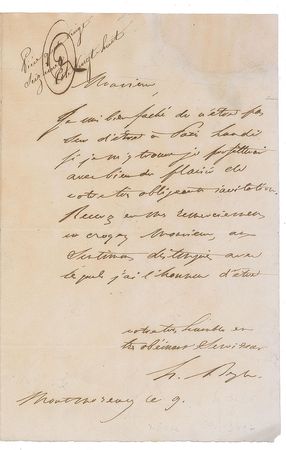 Monsieur,
Je suis bien faché de n'être pas
sur d'être à Paris lundi
si je m'y trouve je profiterai
avec bien du plaisir de
votre très obligeante invitation.
Recevez en mes remerciemens
et croyez Monsieur, au
Sentimens distingué avec
lequel j'ai l'honneur d'être
votre très humble et
très obéissant Serviteur
h. Beyle.
Montmorency ce 9.